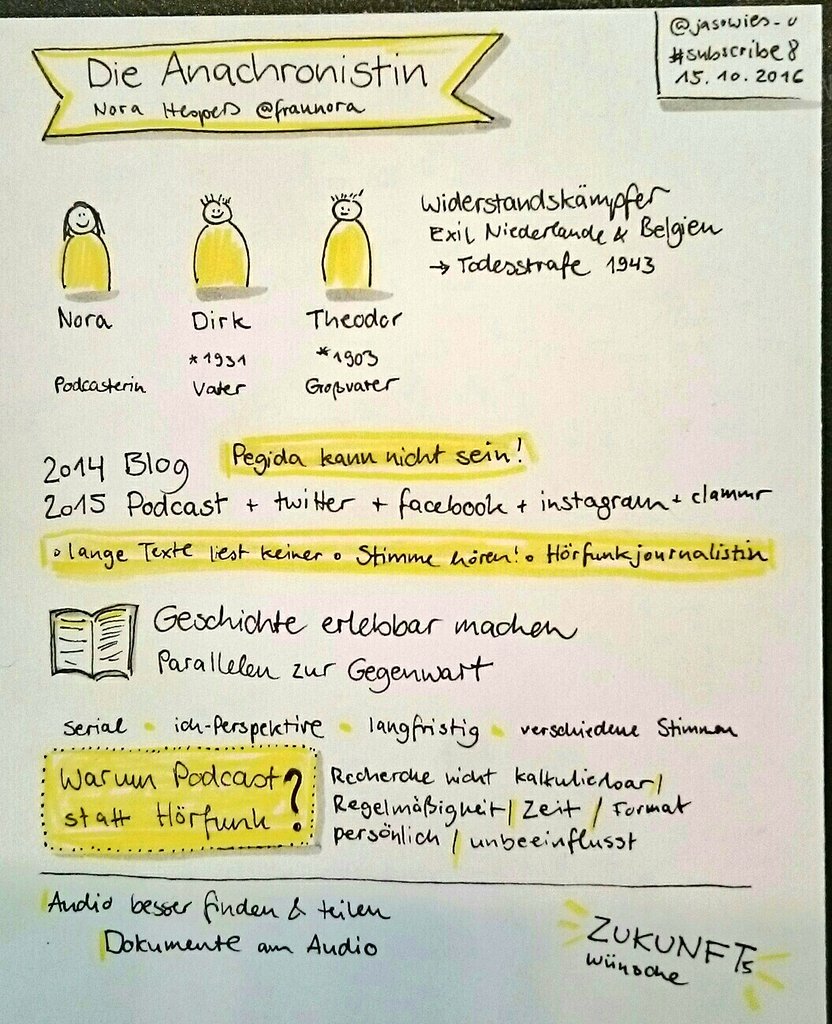 @jasowies_u
#subscribe8
15.10.2016
Die Anachronistin
Nora Hespers @fraunora
Widerstandskämpfer
Exil Niederlande & Belgien
→ Todesstrafe 1943
Nora Dirk Theodor
*1931 *1903
Podcasterin Vater Großvater
2014 Blog Pegida kann nicht sein!
2015 Podcast + twitter + facebook + instagram + clammr
• lange Texte liest keiner • Stimme hören! • Hörfunkjournalistin
Geschichte erlebbar machen
Parallelen zur Gegenwart
serial • ich-Perspektive • langfristig • verschiedene Stimmen
Warum Podcast
statt Hörfunk?
Recherche nicht kalkulierbar /
Regelmäßigkeit / Zeit / Format
persönlich / unbeeinflusst
Audio besser finden & teilen
Dokumente am Audio
ZUKUNFTs
wünsche